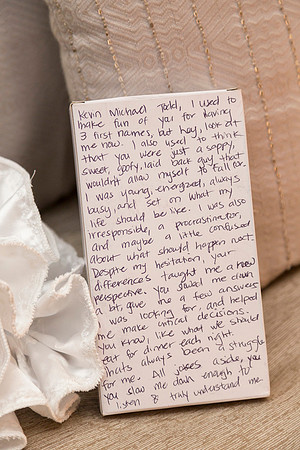 Kevin Michael Todd, I used to
make fun of you for having
3 first names, but hey, look at
me now. I also used to think
that you were just a sappy,
sweet, goofy, laid back guy that
wouldn't allow myself to fall for.
I was young, energized, always
busy, and set on what my
life should be like. I was also
irresponsible, a procrastinator,
and maybe a little confused
about what should happen next.
Despite my hesitation, your
differences taught me a new
perspective. You calmed me down
a lot, give me a few answers
I was looking for, and helped
me make critical decisions.
You know, like what we should
eat for dinner each night.
That's always been a struggle
for me. All jokes aside, you
you slow me down enough to
listen & truly understand me.